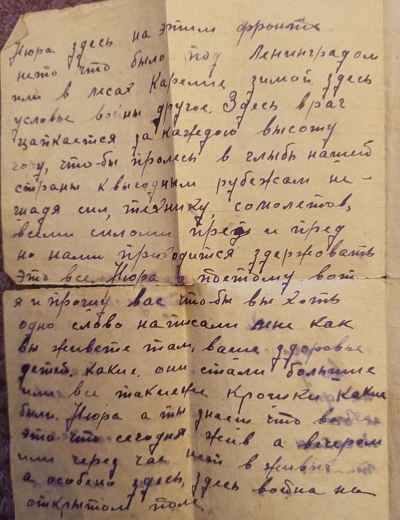 Нюра здесь на этим фронте
нето что было под Ленинградом
или в лесах Карелие зимой. здесь
условье войны другое. Здесь враг
цапкается за каждою высоту
гору, что-бы пролесь в глыбь нашей
страны к выгодным рубежам не-
щадя сил, технику, самолетов,
всеми силами прет и прет
но нами приходится здерживать
это все. Нюра и поетому вот
я и прошу вас что-бы вы хоть
одно слово написали мне как
вы живете там, ваше здоровье
детей, какие они стали большие
или все такиеже крошки какие
были. Нюра а ты знаеш что
это что сегодня жив а вечером
или через час нет в живых
а особено здесь, здесь война на
открытом поле